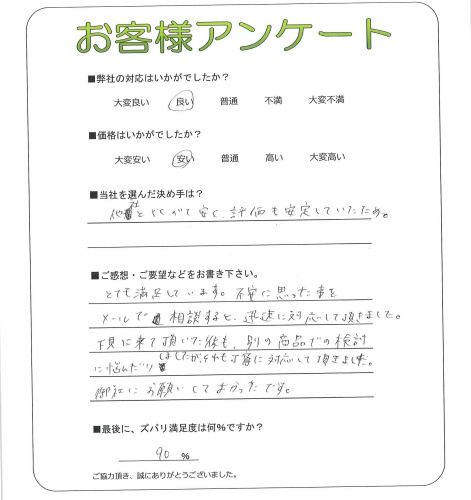 お客様アンケート
■弊社の対応はいかがでしたか?
大変良い 良い 普通 不満 大変不満
■価格はいかがでしたか?
大変安い 安い 普通 高い 大変高い
■当社を選んだ決め手は?
他社とくらべて安く、評価も安定していたため。
■ご感想・ご要望などをお書き下さい。
とても満足しています。不安に思った事を
メールで相談すると、迅速に対応して頂きました。
下見に来て頂いた後も、別の商品での検討
に悩んだりしましたが、それも丁寧に対応して頂きました。
御社にお願いしてよかったです。
■最後に、ズバリ満足度は何%ですか?
90 %
ご協力頂き、誠にありがとうございました。